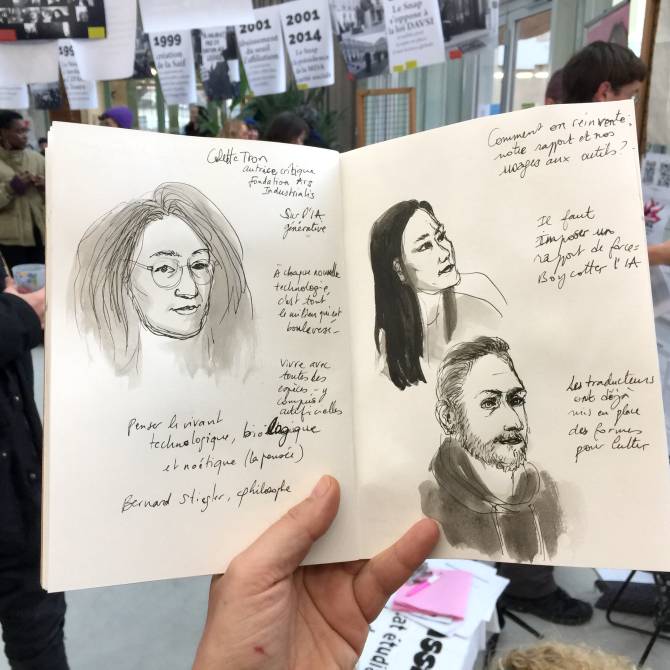 1999
création
de la Saif
2001
2001
2014
Le Snap
s'oppose à
la loi DAVSI
Colette Tron
autrice, critique
Fondation Ars
Industrialis
Sur l'IA
générative
À chaque nouvelle
technologie
c'est tout
le milieu qui est
bouleversé
Vivre avec
toutes les
espèces - y
compris
artificielles
Penser le vivant
technologique, biologique
et noétique (la pensée)
Bernard Stiegler, philosophe
Comment on réinvente
notre rapport et nos
usages aux outils?
Il faut
imposer un
rapport de force -
Boycotter l'IA
Les traducteurs
ont déjà
mis en place
des formes
pour lutter